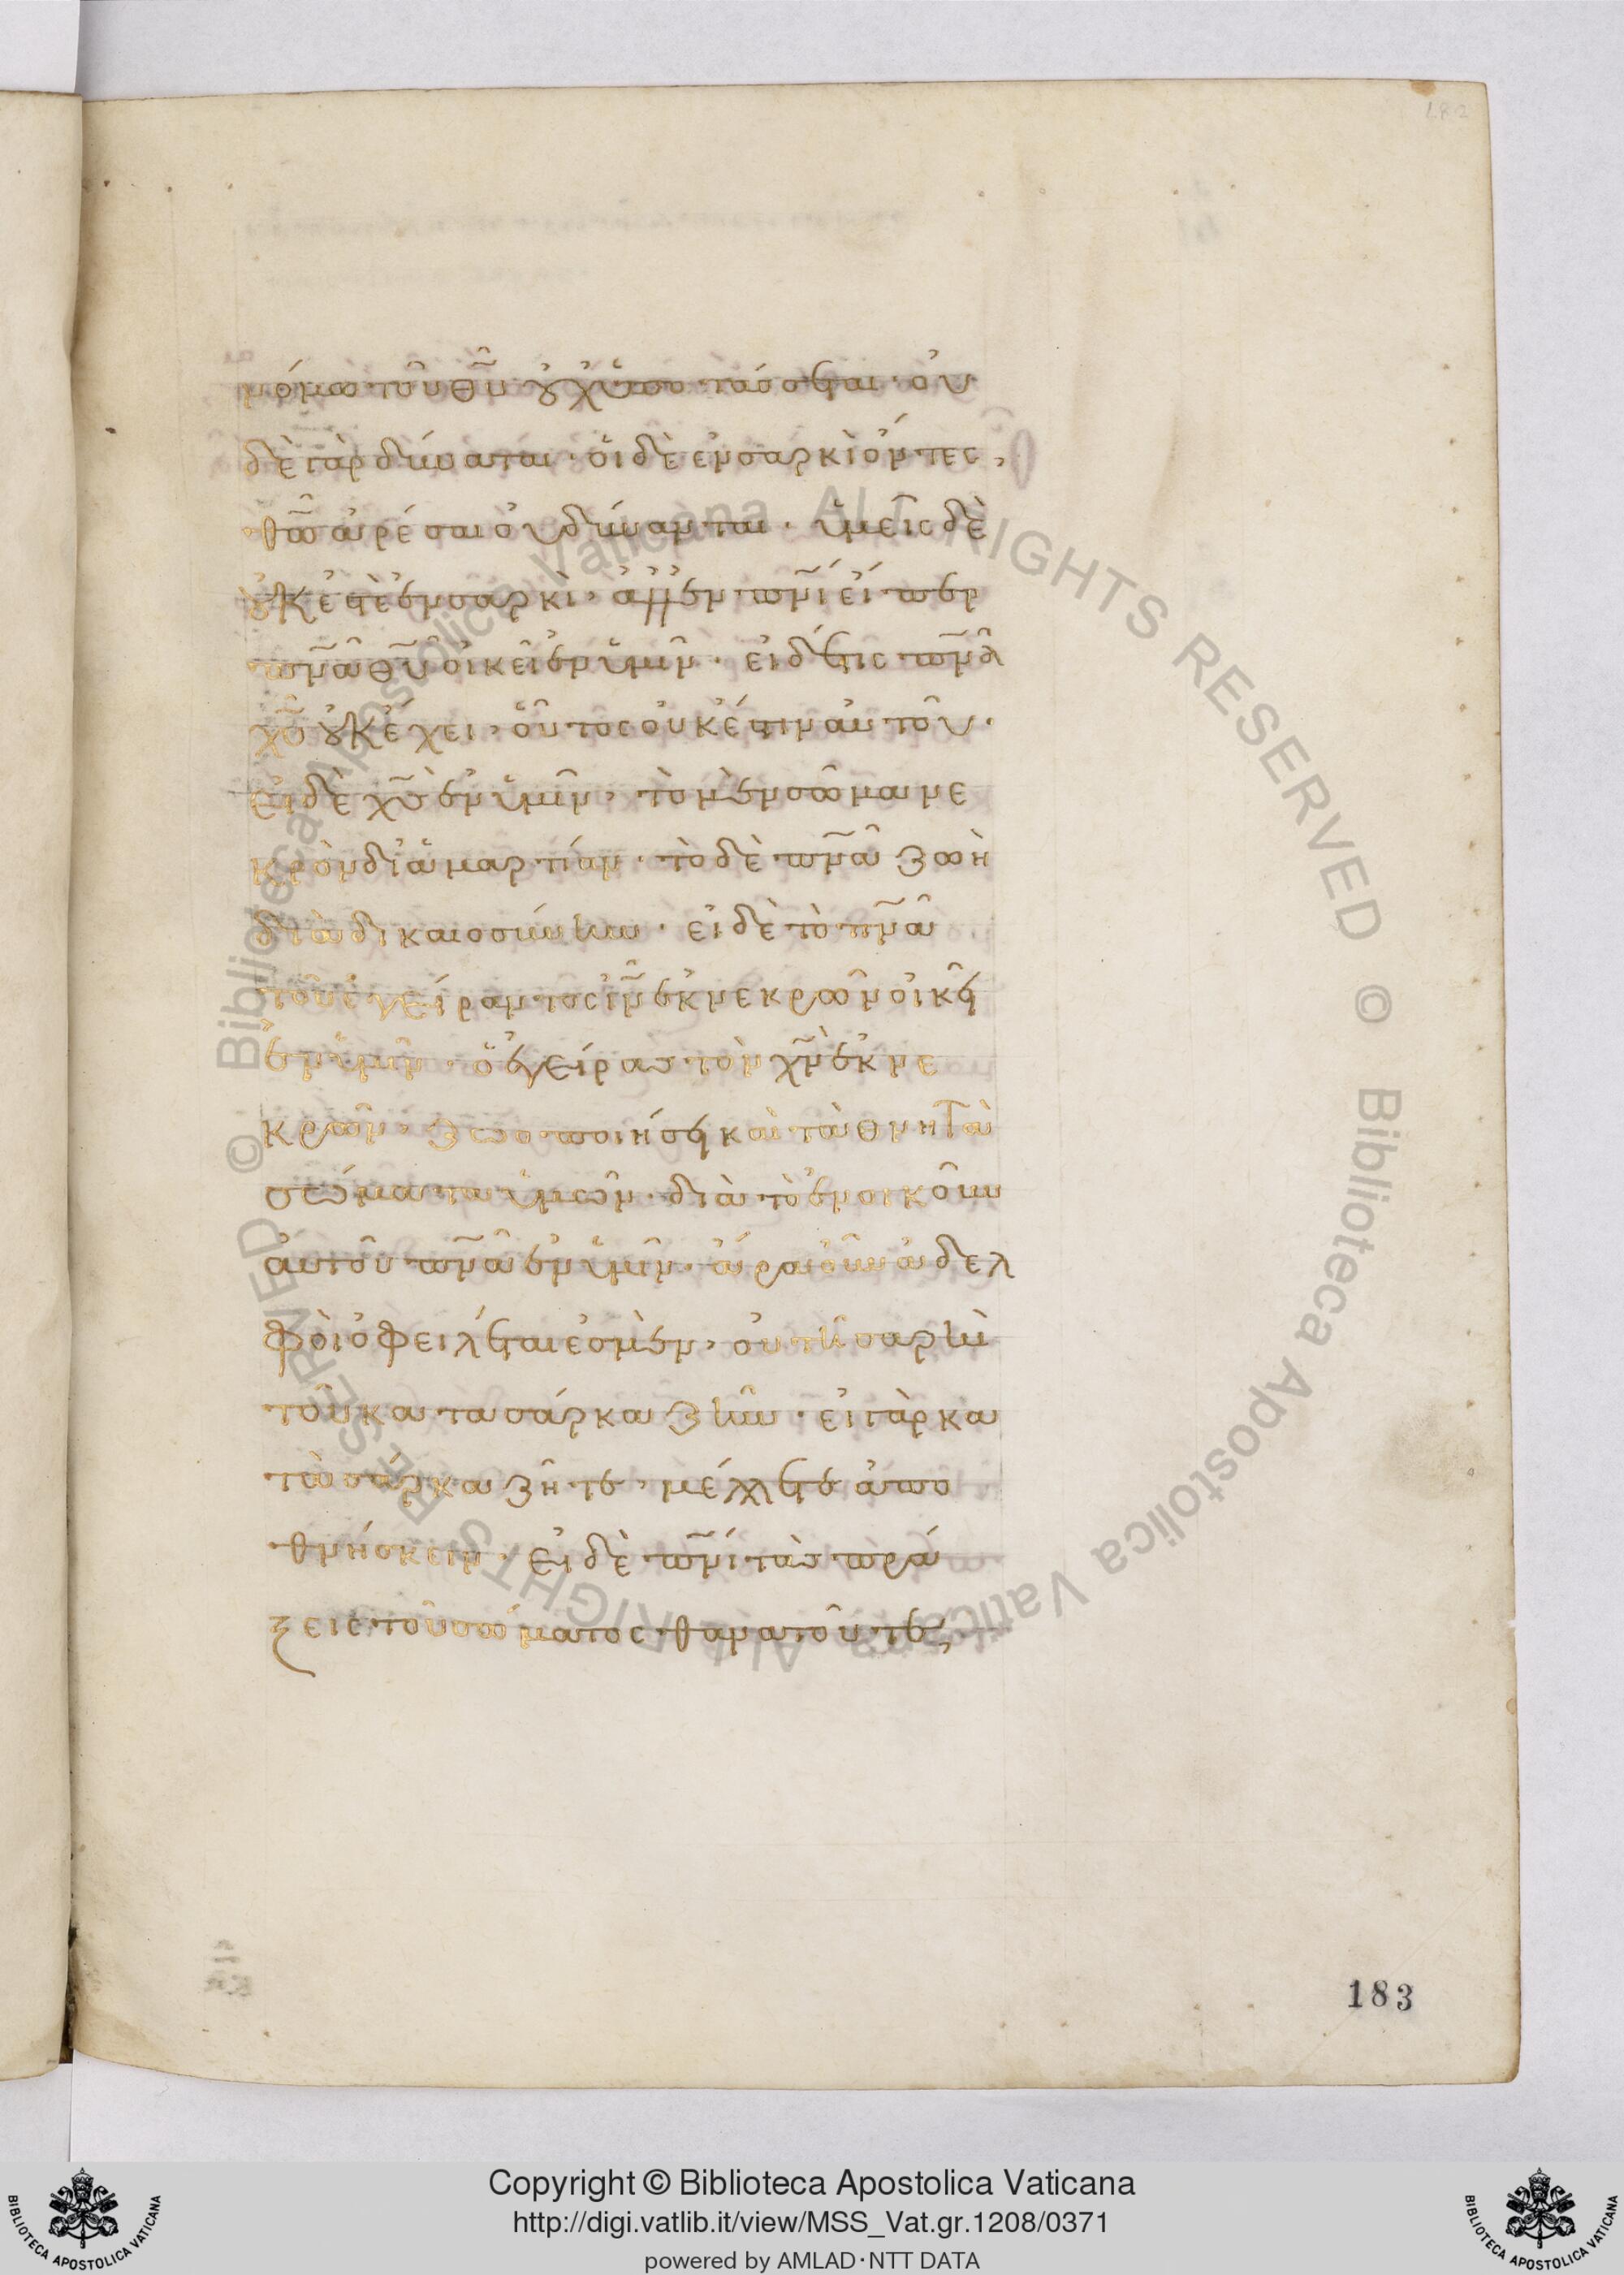 182
νόμω τοῦ θῦ οὐχ ὑποτάσσεται· οὐ
δὲ γὰρ δύναται· οἱ δὲ ἐν σαρκὶ ὄντες,
θῶ ἀρέσαι οὐ δύνανται· ὑμεῖς δὲ
οὐκ ἐστὲ ἐν σαρκὶ· ἀλλ' ἐν πνί εἴπερ
πνᾶ θῦ οἰκεῖ ἐν ὑμῖν· εἰ δέ τις πνᾶ
χῦ οὐκ ἔχει· οὗτος οὐκ ἔστιν αὐτοῦ·
εἰ δὲ χς ἐν ὑμῖν· τὸ μὲν σῶμα νε
κρὸν δι' ἁμαρτίαν· τὸ δὲ πνᾶ ζωὴ
διὰ δικαιοσύνην· εἰ δὲ τὸ πνᾶ
τοῦ ἐγείραντος ιν ἐκ νεκρῶν οἰκεῖ
ἐν ὑμῖν· ὁ ἐγείρας τὸν χν ἐκ νε
κρῶν· ζωοποιήσει καὶ τὰ θνητὰ
σώματα ὑμῶν· διὰ τὸ ἐνοικοῦν
αὐτοῦ πνᾶ ἐν ὑμῖν· ἄρα οὖν ἀδελ
φοὶ ὀφειλέται ἐσμὲν· οὐ τῆ σαρκὶ
τοῦ κατα σάρκα ζῆν· εἰ γὰρ κα
τὰ σάρκα ζῆτε· μέλλετε ἀπο
θνήσκειν· εἰ δὲ πνί τὰς πρά
ξεις τοῦ σώματος θανατοῦτε,
183
© Biblioteca Apostolica Vaticana ALL RIGHTS RESERVED © Biblioteca Apostolica Vaticana ALL RIGHTS RESERVED
BIBLIOTECA APOSTOLICA VATICANA
Copyright © Biblioteca Apostolica Vaticana
http://digi.vatlib.it/view/MSS_Vat.gr.1208/0371
powered by AMLAD·NTT DATA
BIBLIOTECA APOSTOLICA VATICANA